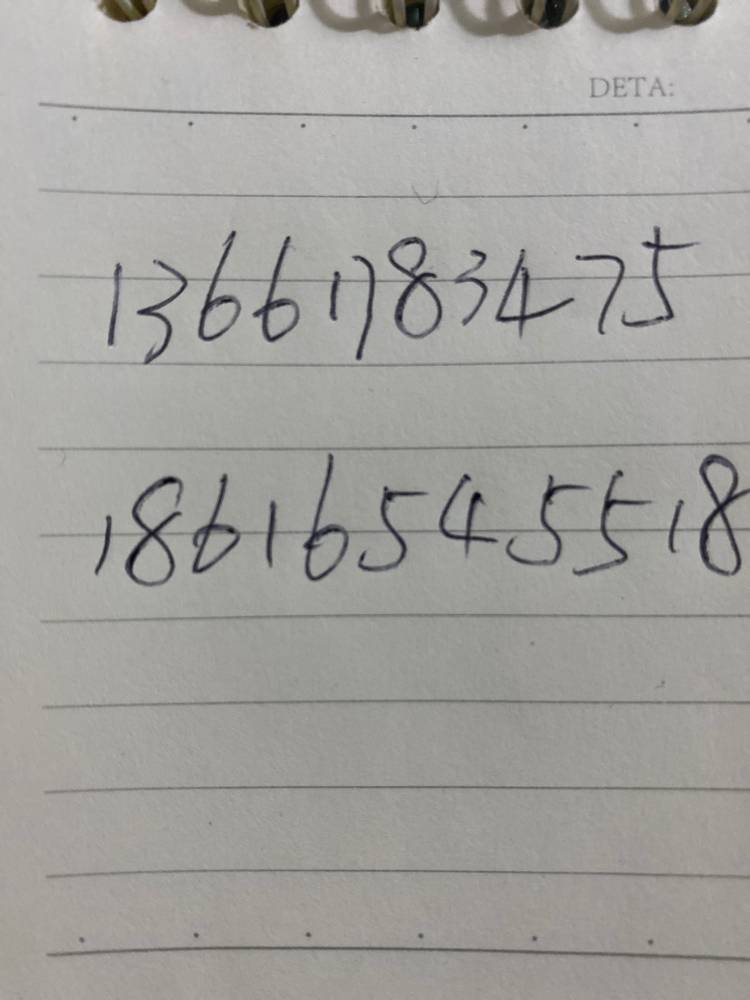 DETA:
13661783475
18616545518